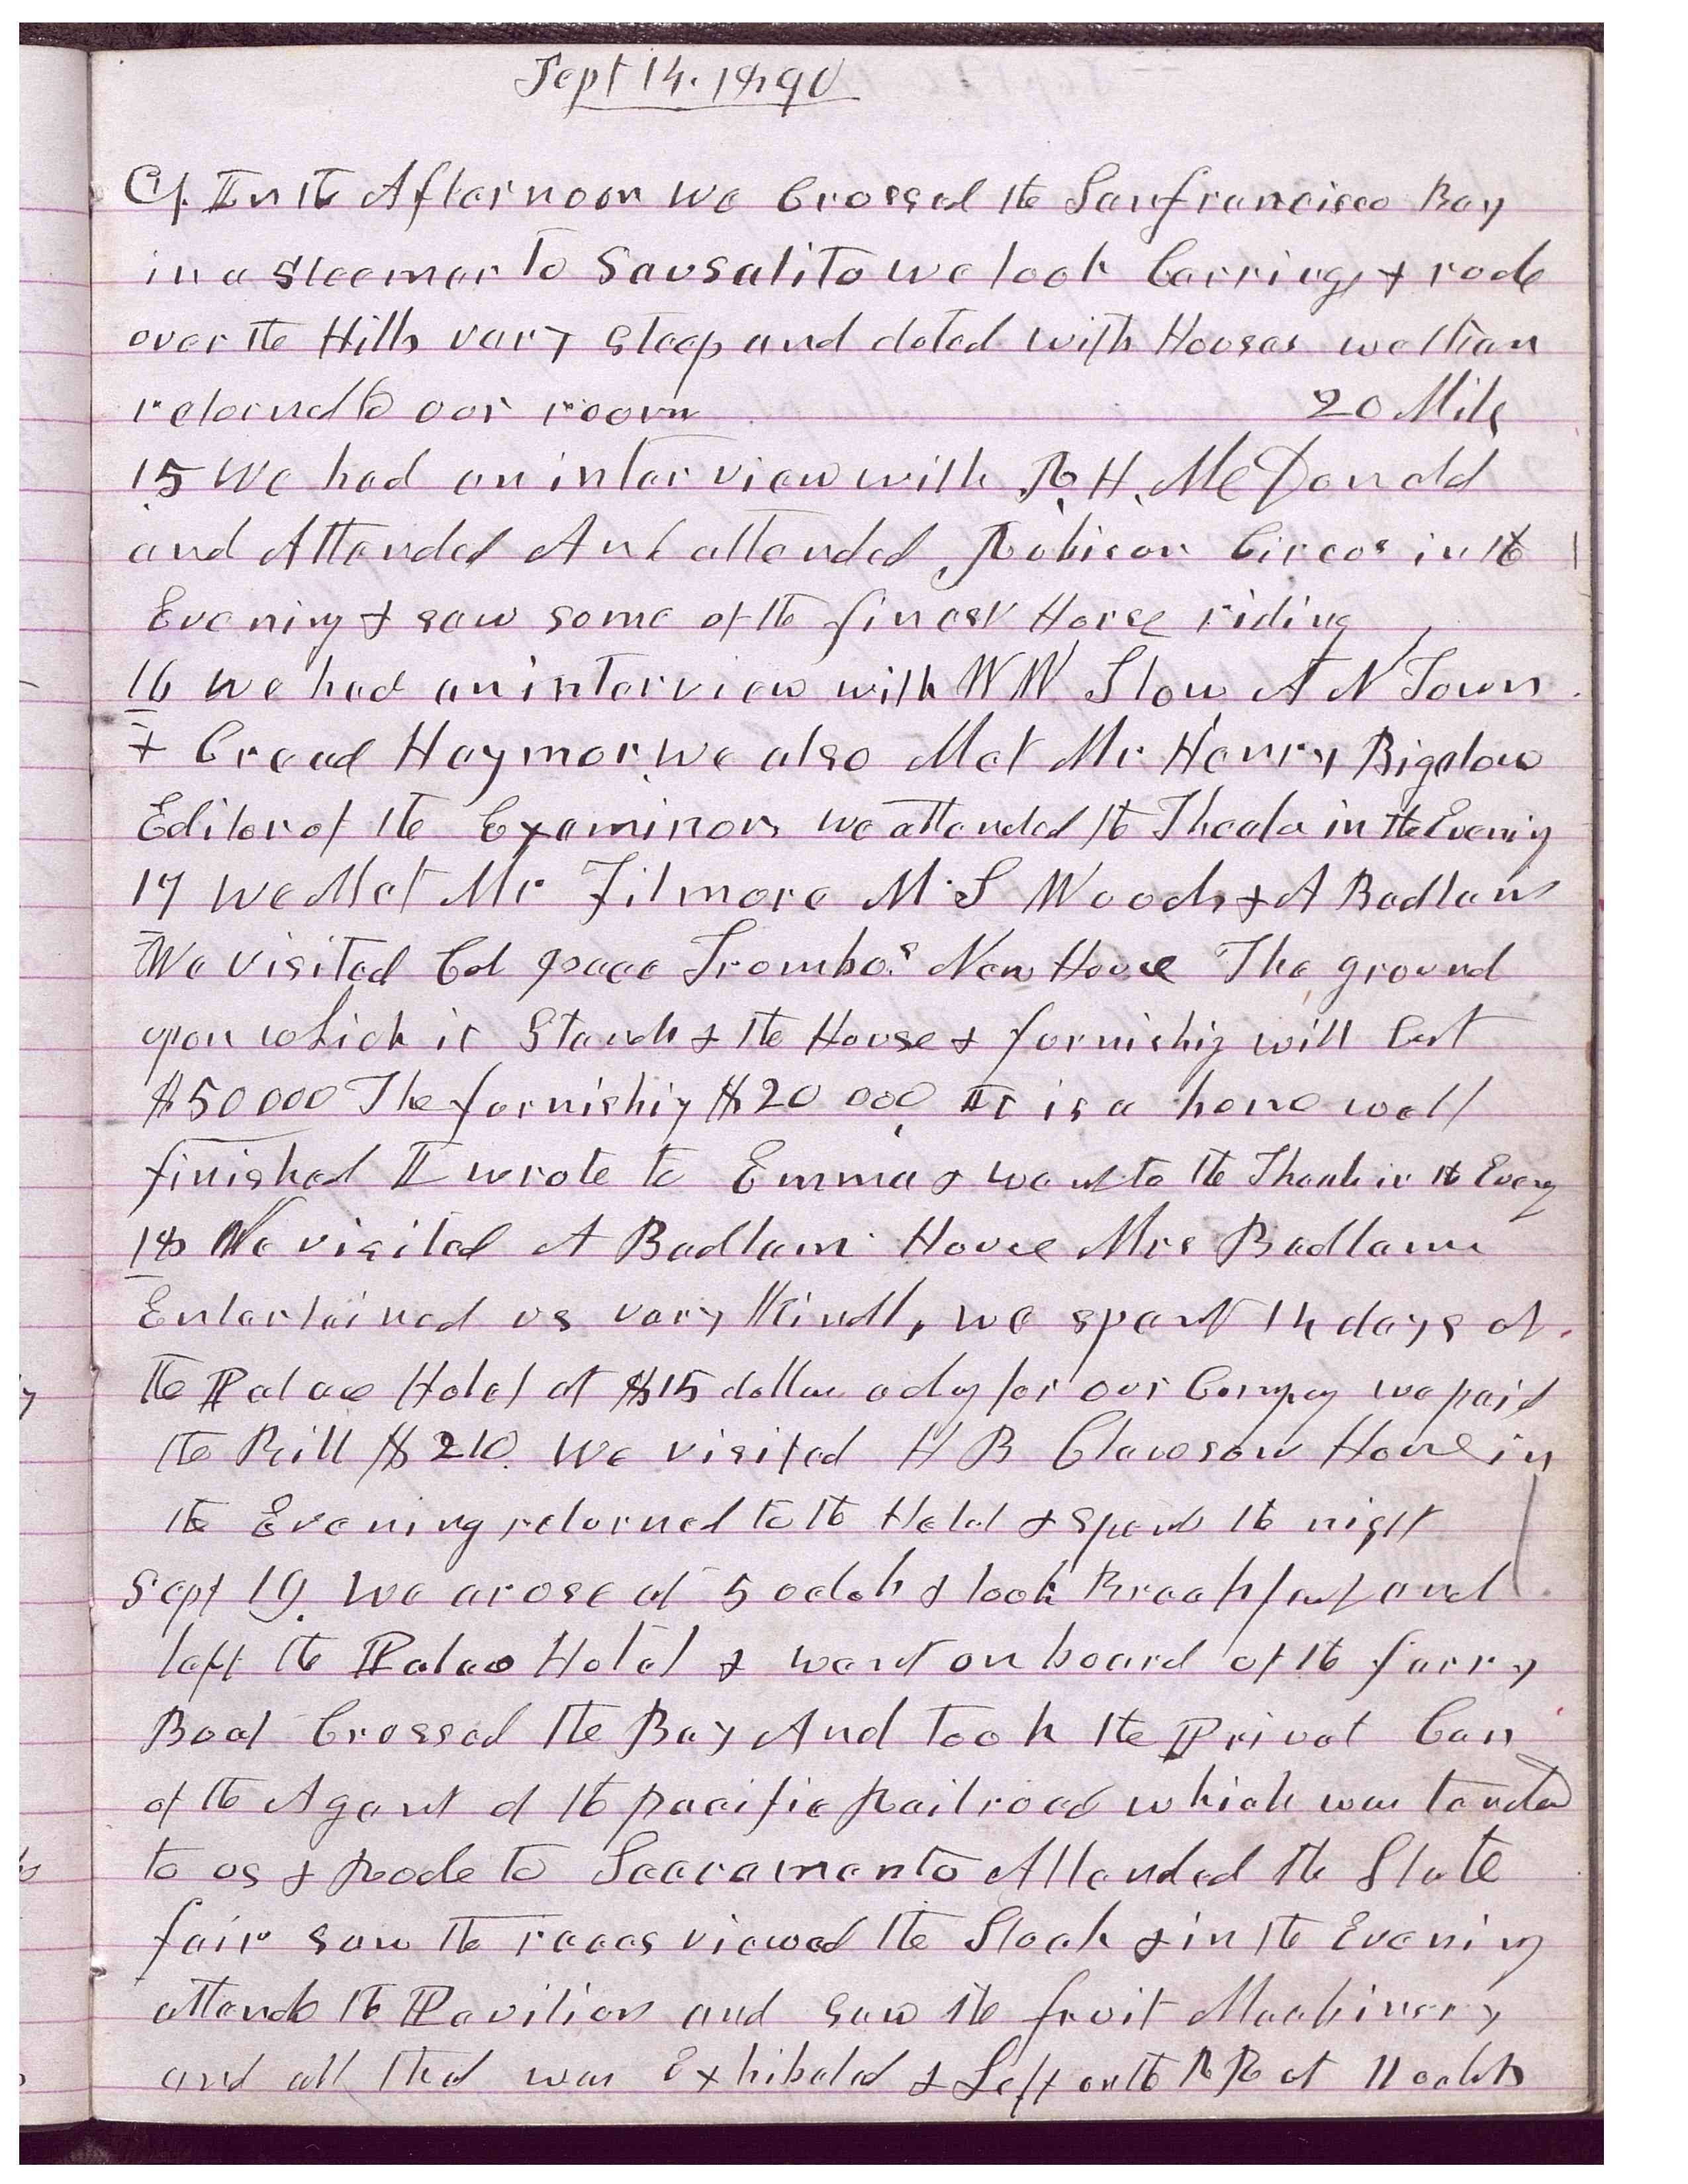 Sept 14. 1890
In the Afternoon we Crossed the Sanfrancisco Bay
in a Steemer to Sausalito we took Carriag & rode
over the Hills vary Steep and doted with Houses we than
returnd to our room 20 Mile
15 We had an interview with R. H. McDonald
and Attended And attended Robison Circos in the
Evening & saw some of the finest Horse riding
16 We had an interview with W W Stow A N Town
& Creed Haymor. we also Met Mr Henry Bigelow
Editor of the Examinor, we attended the Theater in the Evenig
17 We Met Mr Filmore M. S Woods & A Badlam
We visited Col Isaac Trumbo.s New House The ground
upon which it Stands & the House & furnishig will Cost
$50000 The furnishig $20 000, It is a home well
finished I wrote to Emma & went to the Theater in the Eveng
18 We visited A Badlam House Mrs Badlam
Entertained us vary Kindly, we spent 14 days at
the Palace Hotel at $15 dollars a day for our Compny we paid
the Bill $210. We visited H B Clawson House in
the Evening returned to the Hotel & spent the night
Sept 19. We arose at 5 oclok & took Breakfast and
left the Palace Hotel & went on board of the farry
Boat Crossed the Bay And took the Privat Car
of the Agent of the pacific Railroad which was tended
to us & Rode to Sacramento Attended the State
fair saw the races viewed the Stock & in the Evening
attends the Pavilion and saw the fruit Machinery
and all that was Exhibeted & Left on the RR at 11 oclok